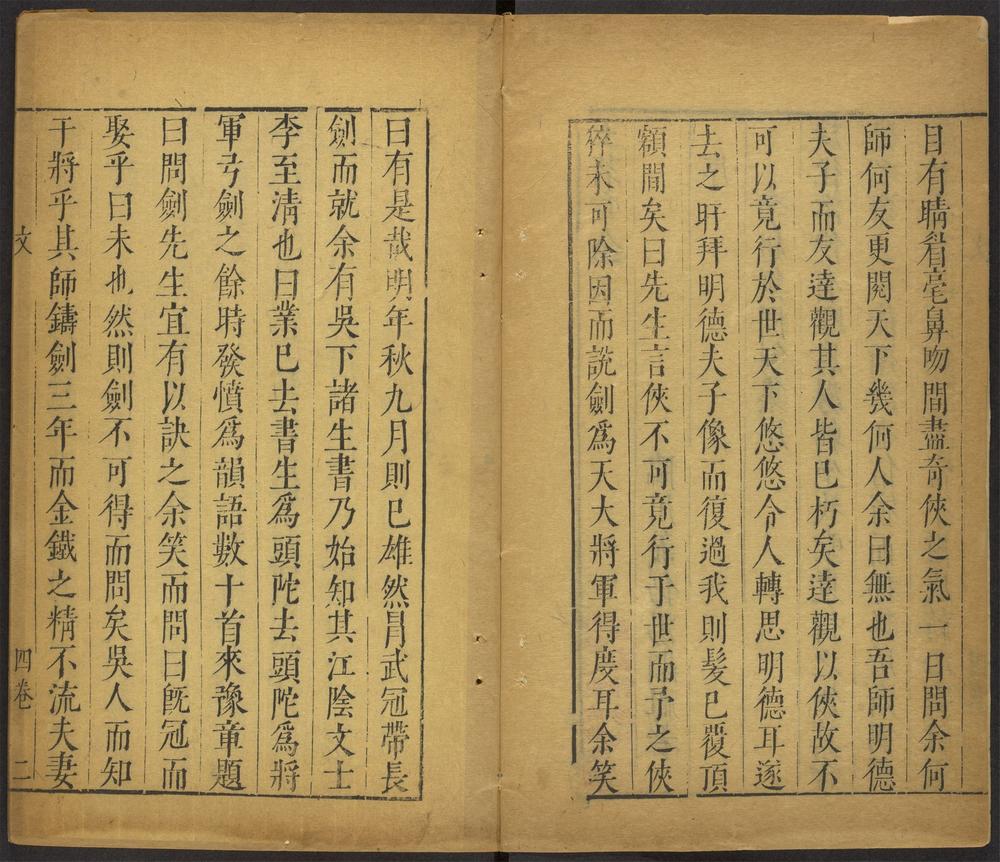 目有睛眉毫鼻吻間盡奇俠之氣一日問余何
師何友更閱天下幾何人余曰無也吾師明德
夫子而友達觀其人皆已朽矣達觀以俠故不
可以竟行於世天下悠悠令人轉思明德耳遂
去之盱拜明德夫子像而復過我則髮已覆頂
額間矣曰先生言俠不可竟行于世而予之俠
猝未可除因而說劍為天大將軍得度耳余笑
曰有是哉明年秋九月則已雄然冐武冠帶長
劍而就余有吳下諸生書乃始知其江陰文士
李至清也曰業已去書生爲頭陀去頭陀爲將
軍弓劍之餘時發憤爲韻語數十首來豫章題
曰問劍先生宜有以訣之余笑而問曰旣冠而
娶乎曰未也然則劍不可得而問矣吳人而知
干將乎其師鑄劍三年而金鐵之精不流夫妻
文 四卷 二